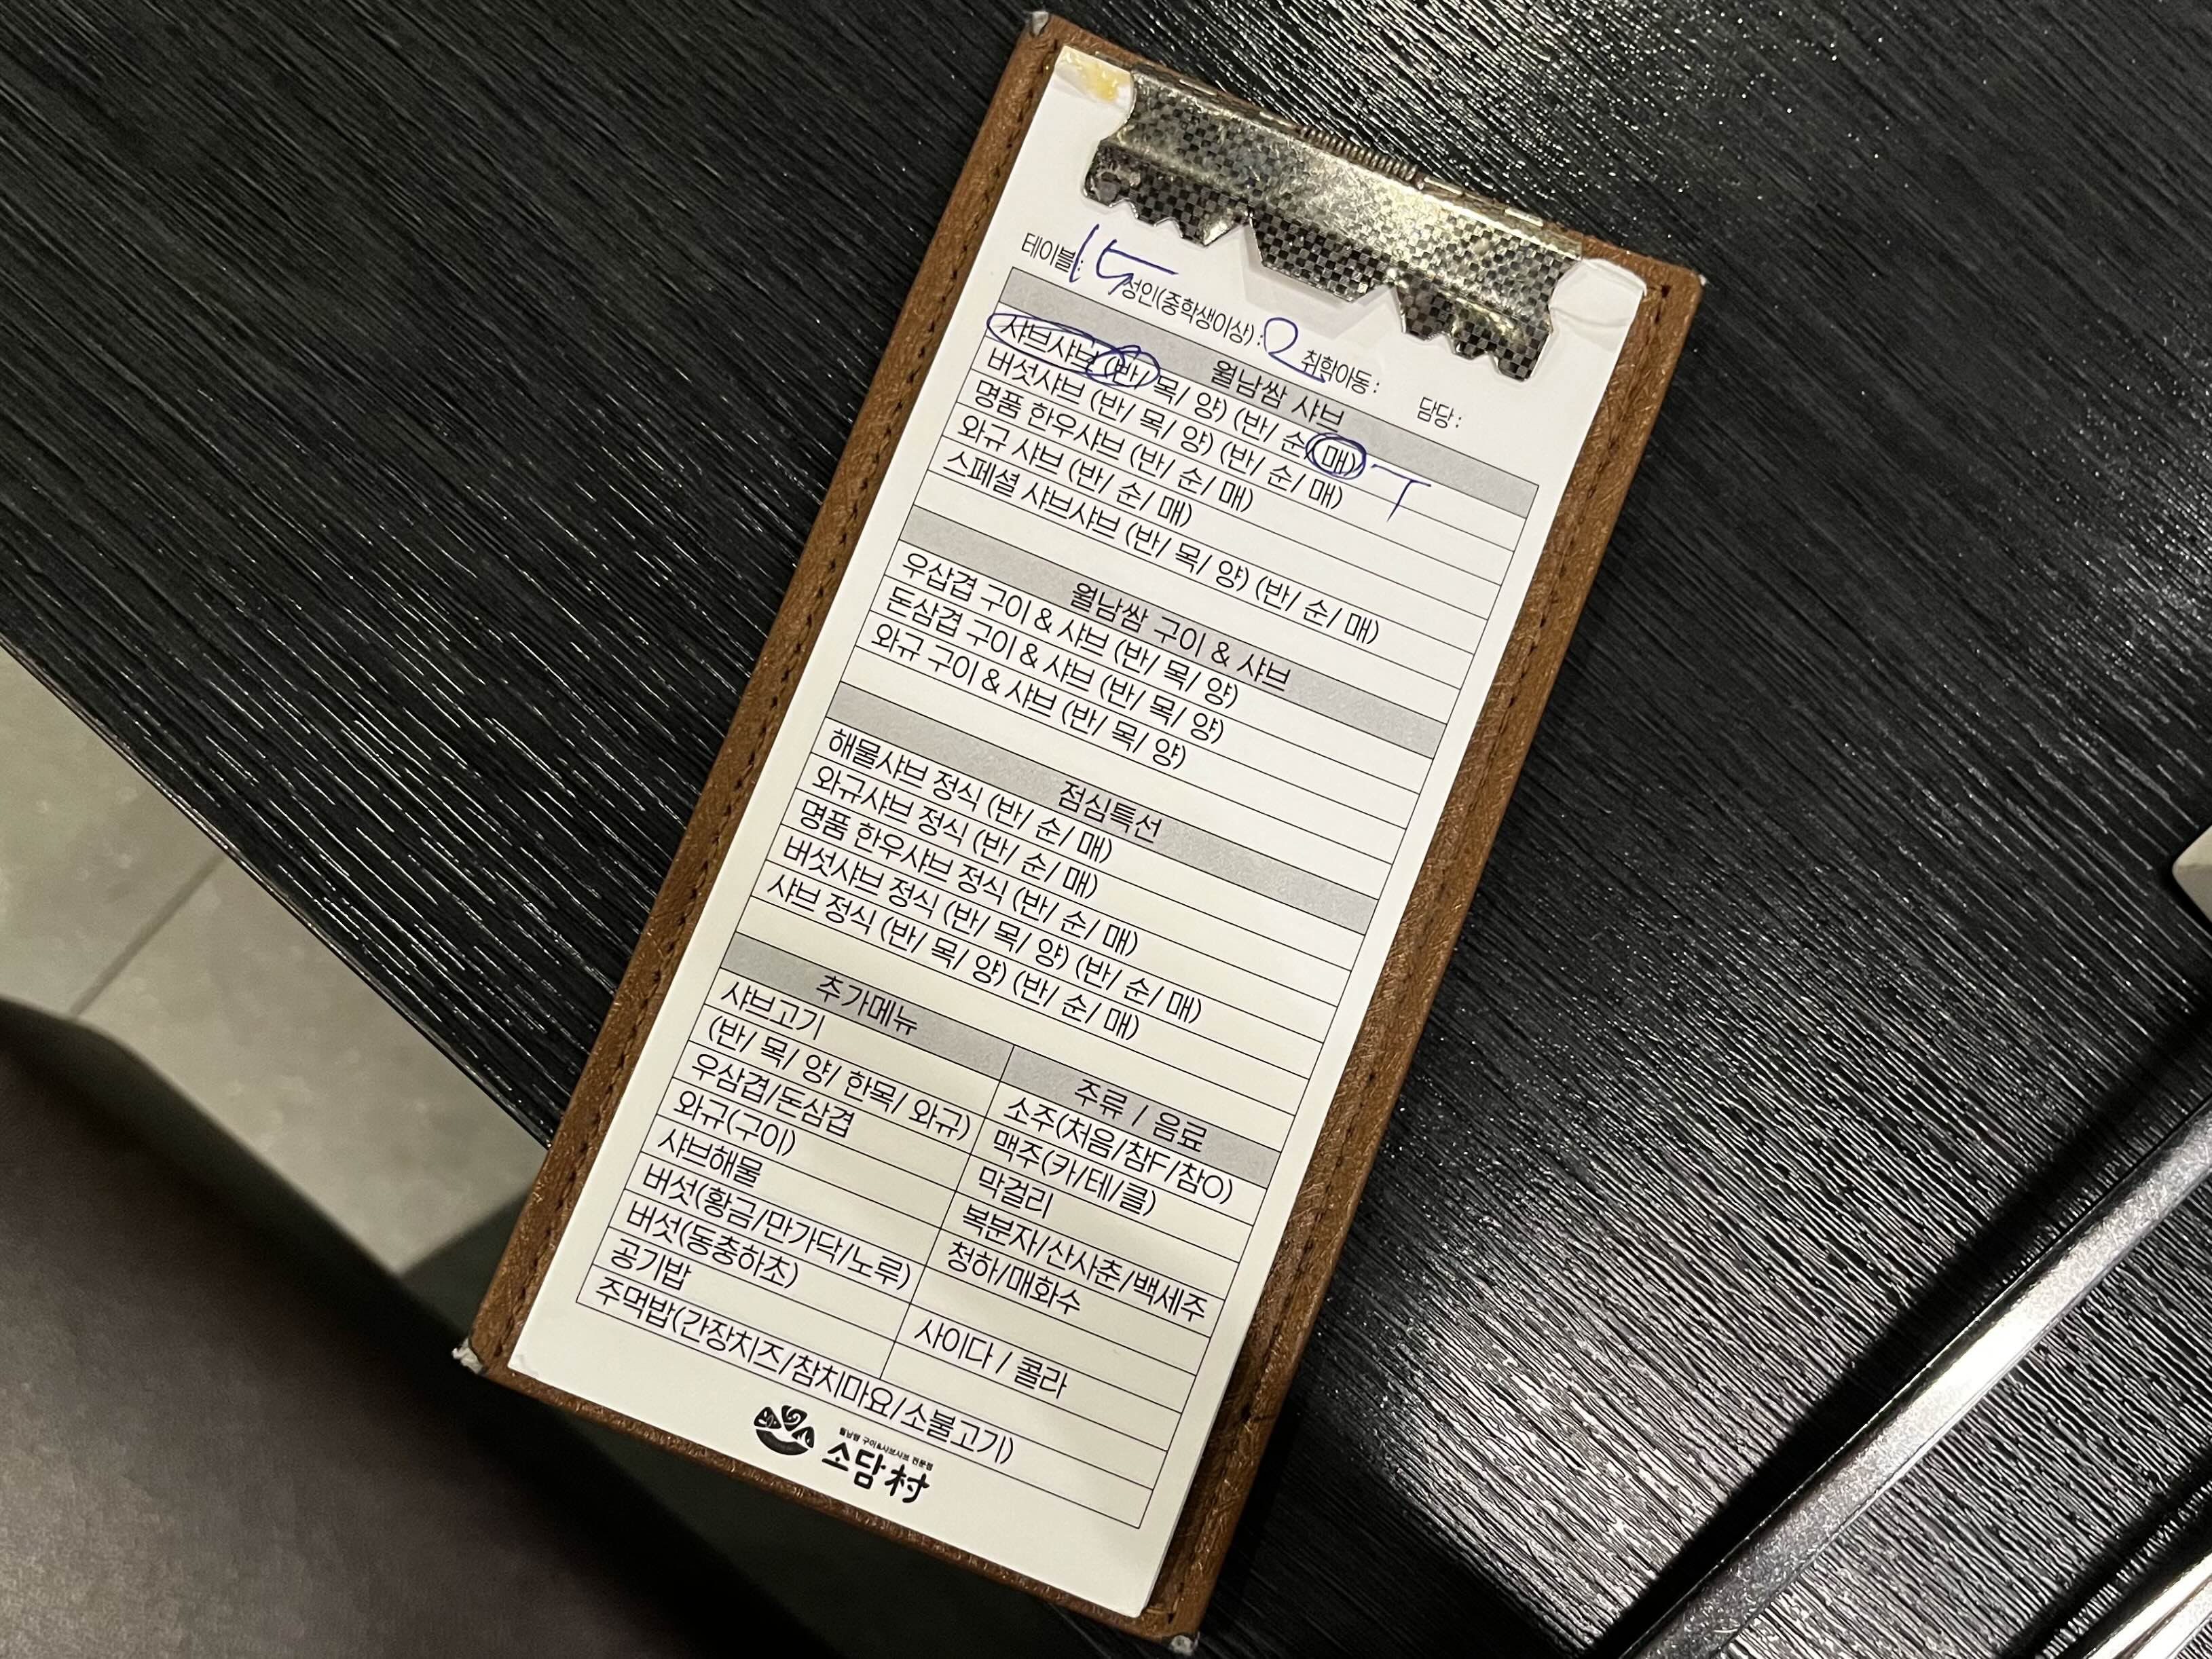 테이블: 15 성인(중학생이상) : 2 취학아동 : 담당 :
월남쌈 샤브
샤브샤브 (반/ 목/ 양) (반/ 순/ 매) T
버섯샤브 (반/ 목/ 양) (반/ 순/ 매)
명품 한우샤브 (반/ 순/ 매)
와규 샤브 (반/ 순/ 매)
스페셜 샤브샤브 (반/ 목/ 양) (반/ 순/ 매)
월남쌈 구이 & 샤브
우삼겹 구이 & 샤브 (반/ 목/ 양)
돈삼겹 구이 & 샤브 (반/ 목/ 양)
와규 구이 & 샤브 (반/ 목/ 양)
점심특선
해물샤브 정식 (반/ 순/ 매)
와규샤브 정식 (반/ 순/ 매)
명품 한우샤브 정식 (반/ 순/ 매)
버섯샤브 정식 (반/ 목/ 양) (반/ 순/ 매)
샤브 정식 (반/ 목/ 양) (반/ 순/ 매)
추가메뉴
샤브고기
(반/ 목/ 양/ 한목/ 와규)
우삼겹/돈삼겹
와규(구이)
샤브해물
버섯(황금/만가닥/노루)
버섯(동충하초)
공기밥
주먹밥(간장치즈/참치마요/소불고기)
주류 / 음료
소주(처음/참F/참O)
맥주(카/테/클)
막걸리
복분자/산사춘/백세주
청하/매화수
사이다 / 콜라
월남쌈 구이&샤브샤브 전문점
소담村